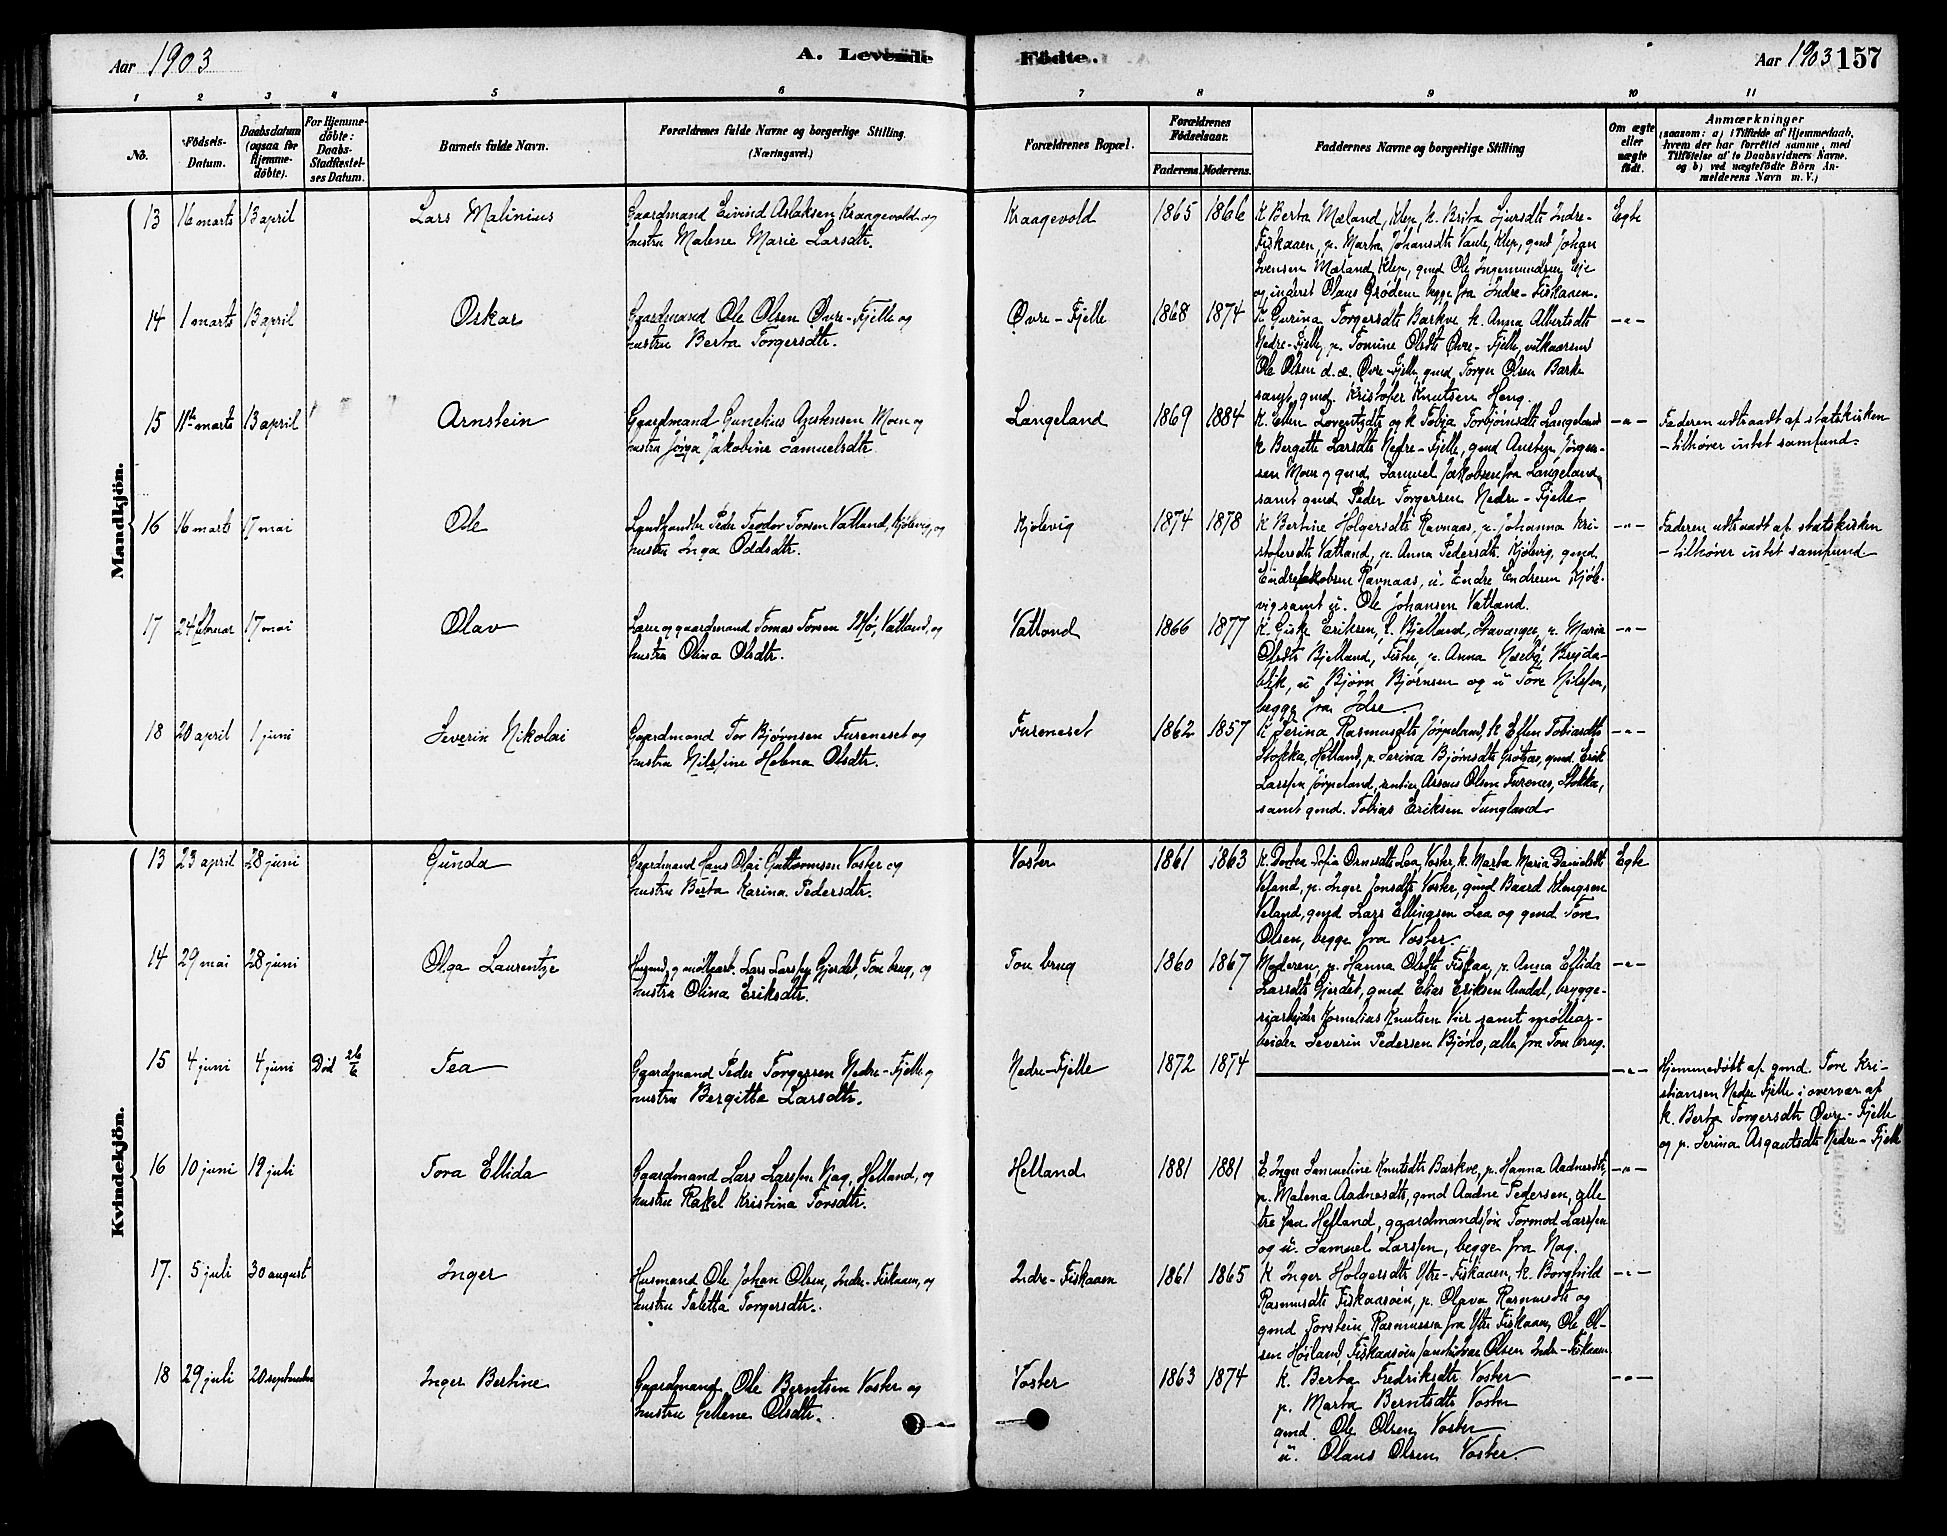 Aar 1903
A. Levende
Födte.
Aar 1903 157
1 2 3 4 5 6 7 8 9 10 11
No.
Födsels-Datum.
Daabsdatum (ogsaa for Hjemmedöbte).
For Hjemmedöbte: Daabs-Stadfæstelses Datum.
Barnets fulde Navn.
Forældrenes fulde Navne og borgerlige Stilling.
(Næringsvei.)
Forældrenes Bopæl.
Forældrenes Födselsaar.
Faderens. Moderens.
Faddernes Navne og borgerlige Stilling
Om ægte eller uægte født.
Anmærkninger
(saasom: a) i Tilfælde af Hjemmedaab, hvem der har forrettet samme, med Tilföielse af to Daabsvidners Navne, og b) ved uægtefödte Börn Anmelderens Navn m. V.)
Mandkjön.
13 16 marts 13 april Lars Malinius
Gaardmand Eivind Aslaksen Kraagevold og
hustru Malene Marie Larsdtr.
Kraagevold 1865 1866
K Berta Mæland, Klep, k. Brita Sjursdtr Indre-
Fiskaaen, p. Marta Johansdtr Vaule, Klep, gmd Johan
Svensen Mæland, Klep, gmd Ole Ingemundsen Eje
og inderst Olaus Grødem begge fra Indre-Fiskaaen.
Egte
14 1 marts 13 april Oskar
Gaardmand Ole Olsen Øvre-Fjelle og
hustru Berta Torgersdtr.
Øvre-Fjelle 1868 1874
K Gurina Torgersdtr Barkve k. Anna Albertsdtr
Nedre-Fjelle, p. Tomine Olsdtr Øvre-Fjelle, vilkaarsmd
Ole Olsen d.æ. Øvre-Fjelle, gmd Torger Olsen Barke
samt gmd. Kristofer Knutsen Heng.
-"-
15 11te marts 13 april Arnstein
Gaardmand Gunelius Austensen Moen og
hustru Jørga Jakobine Samuelsdtr.
Langeland 1869 1884
K. Elen Loventsdtr og k Tobia Torbjørnsdtr Langeland
k Bergitte Larsdtr Nedre-Fjelle, gmd Austen Jørgen-
sen Moen og gmd Samuel Jakobsen fra Langeland,
samt gmd Peder Torgersen Nedre-Fjelle
-"-
Faderen udtraadt af statskirken
- tilhører intet samfund.
16 16 marts 17 mai Ole
Landhandler Peder Teodor Torsen Vatland, Kjølevig, og
hustru Inga Oddsdtr.
Kjølevig 1874 1878
K Bertine Holgersdtr Ravnaas, p. Johanna Kri-
stofersdtr Vatland, p. Anna Pedersdtr. Kjølvig, gmd.
Endre Jakobsen Ravnaas, u. Endre Endresen Kjøle-
vig samt u. Ole Johansen Vatland.
-"-
Faderen udtraadt af statskirken
- tilhører intet samfund
17 24 februar 17 mai Olav
Lærer og gaardmand Tomas Torsen Mo, Vatland, og
hustru Olina Olsdtr.
Vatland 1866 1877
K. Giske Eriksen, L. Bjelland, Stavanger, p. Maria
Olsdtr Bjelland, Fister, p. Anna Nesebø, Breida-
blik, u Bjørn Bjørnsen og u Tore Nilssen,
begge fra Idse.
-"-
18 20 april 1 juni Severin Nikolai
Gaardmand Tor Bjørnsen Fureneset og
hustru Nilsine Helena Olsdtr.
Fureneset 1862 1857
K Serina Rasmusdtr Jørpeland, k Ellen Tobiasdtr
Stokka, Helland, p. Serina Bjørnsdtr Grøtnes, gmd. Erik
Larssen Jørpeland, rentier Asseus Olsen Furenes, Stokka,
samt gmd. Tobias Eriksen Tungland
-"-
Kvindekjön.
13 23 april 28 juni Gunda
Gaardmand Hans Olai Guttormsen Voster og
hustru Berta Karina Pedersdtr.
Voster 1861 1863
K. Dortea Sofia Ormsdtr Lea, Voster, k. Marta Maria Danielsdtr
Veland, p. Inger Jonsdtr Voster, gmd Baard Klengsen
Veland, gmd Lars Ellingsen Lea og gmd Tore
Olsen, begge fra Voster.
Egte
14 29 mai 28 juni Olga Laurentze
Husmd. og møllearb. Lars Larssen Gjerdet, Tou brug, og
hustru Olina Eriksdtr.
Tou brug 1860 1867
Moderen, p. Hanna Olsdtr Fiskaa, p. Anna Ellida
Larsdtr Gjerdet, gmd Elias Eriksen Amdal, brygge-
riarbeider Kornelius Knutsen Vier samt møllear-
beider Severin Pedersen Bjørlo, alle fra Tou brug.
-"-
15 4 juni 4 juni Død 26/6 Tea
Gaardmand Peder Torgersen Nedre-Fjelle og
hustru Bergitte Larsdtr.
Nedre-Fjelle 1872 1874
-"-
Hjemmedøbt af gmd. Tore Kri-
stiansen Nedre Fjelle i overvær af
k. Berta Torgersdtr Øvre-Fjelle
og p. Serina Asgautsdtr Nedre-Fjelle
16 10 juni 19 juli Tora Ellida
Gaardmand Lars Larssen Nag, Helland, og
hustru Rakel Kristina Torsdtr.
Helland 1881 1881
E Inger Samueline Knutsdtr Barkve, p. Hanna Aadnesdtr,
p. Malena Aadnesdtr, gmd Aadne Pedersen, alle
tre fra Helland, gaardmandssøn Tormod Larssen
og u. Samuel Larssen, begge fra Nag.
-"-
17. 5 juli 30 august Inger
Husmand Ole Johan Olsen, Indre-Fiskaaen, og
hustru Taletta Torgersdtr.
Indre-Fiskaaen 1861 1865
K Inger Holgersdtr Ytre-Fiskaaen, k. Borghild
Rasmusdtr Fiskaasøen, p. Olava Rasmusdtr og
gmd Torstein Rasmussen fra Ytre Fiskaaen, Ole Ol-
sen Høiland, Fiskaasøen, Olsen Indre-Fiskaaen
-"-
18 29 juli 20 september Inger Bertine
Gaardmand Ole Berntsen Voster og
hustru Gellene Olsdtr.
Voster 1863 1874
k. Berta Fredriksdtr Voster
p. Marta Berntsdtr Voster
gmd. Ole Olsen Voster
u. Olaus Olsen Voster.
-"-